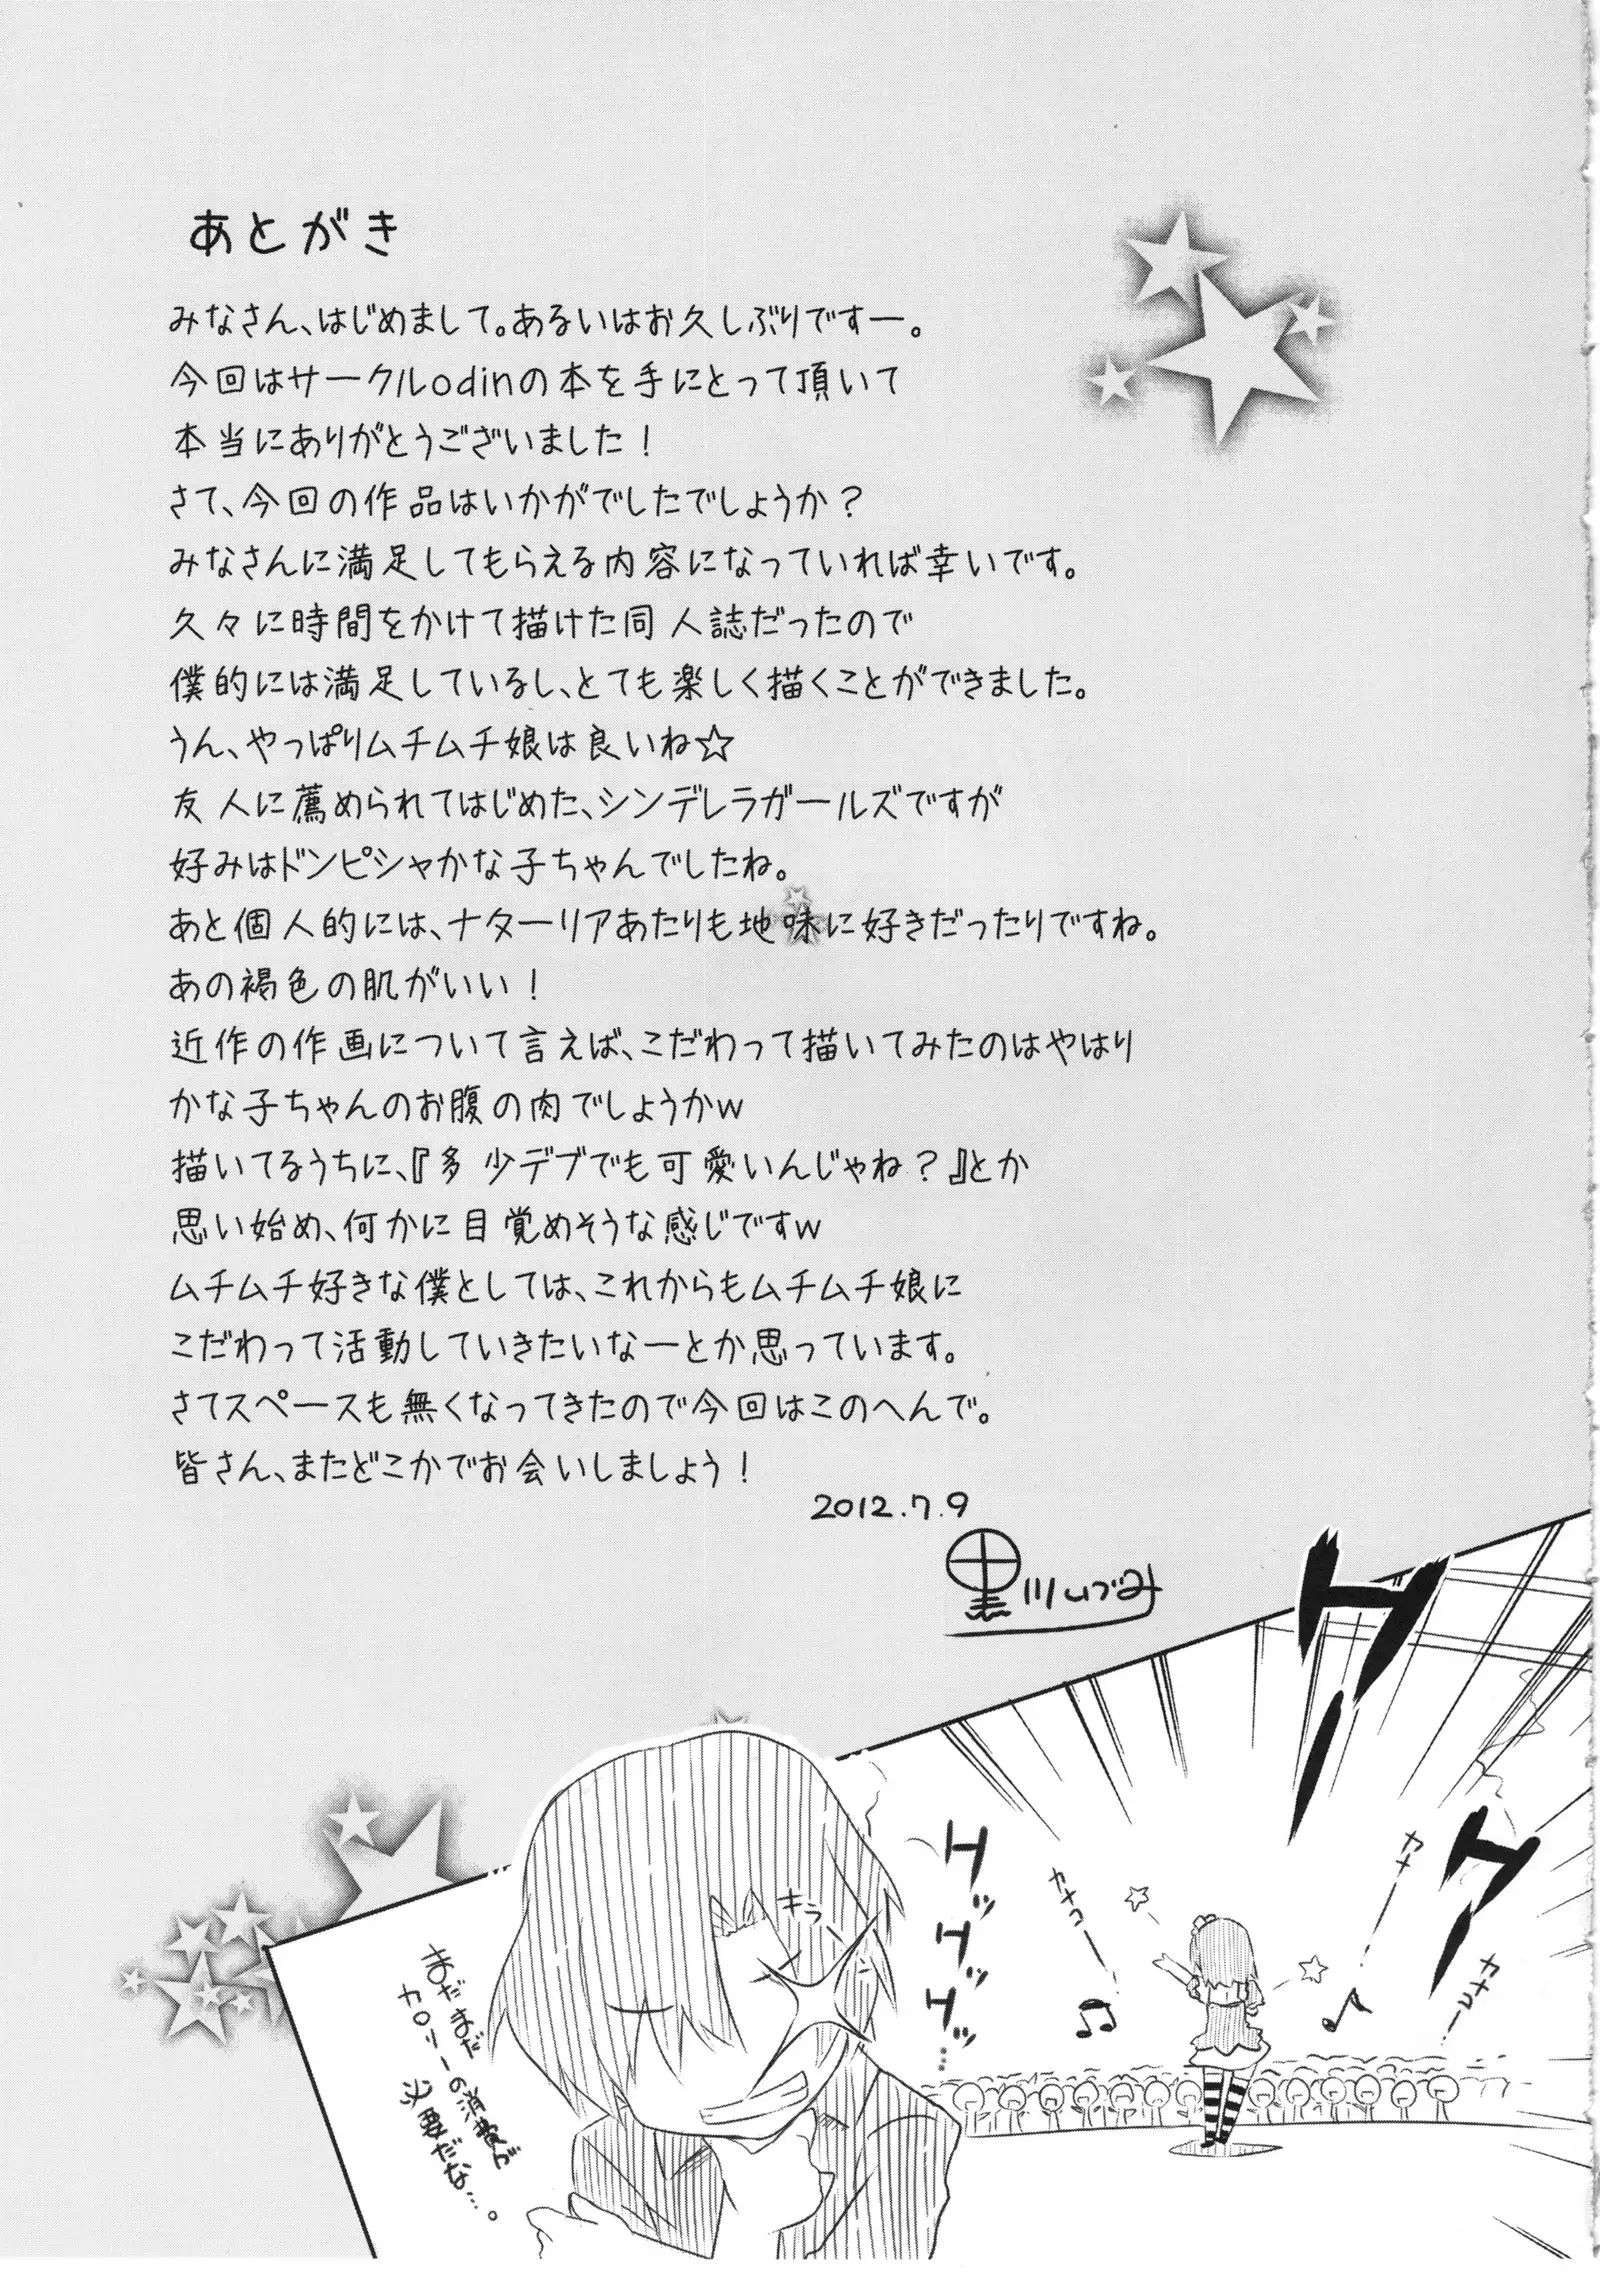 あとがき
みなさん、はじめまして。あるいはお久しぶりですー。
今回はサークルodinの本を手にとって頂いて
本当にありがとうございました！
さて、今回の作品はいかがでしたでしょうか？
みなさんに満足してもらえる内容になっていれば幸いです。
久々に時間をかけて描けた同人誌だったので
僕的には満足しているし、とても楽しく描くことができました。
うん、やっぱりムチムチ娘は良いね☆
友人に薦められてはじめた、シンデレラガールズですが
好みはドンピシャかな子ちゃんでしたね。
あと個人的には、ナターリアあたりも地味に好きだったりですね。
あの褐色の肌がいい！
近作の作画について言えば、こだわって描いてみたのはやはり
かな子ちゃんのお腹の肉でしょうかw
描いてるうちに、『多少デブでも可愛いんじゃね？』とか
思い始め、何かに目覚めそうな感じですw
ムチムチ好きな僕としては、これからもムチムチ娘に
こだわって活動していきたいなーとか思っています。
さてスペースも無くなってきたので今回はこのへんで。
皆さん、またどこかでお会いしましょう！
2012.7.9
黒川いづみ
ワー
ワー
カナ
カナコー
カナコー
ドッ
ドッ
ドッ…
キラーン
まだまだ
カロリーの消費が
必要だな…。